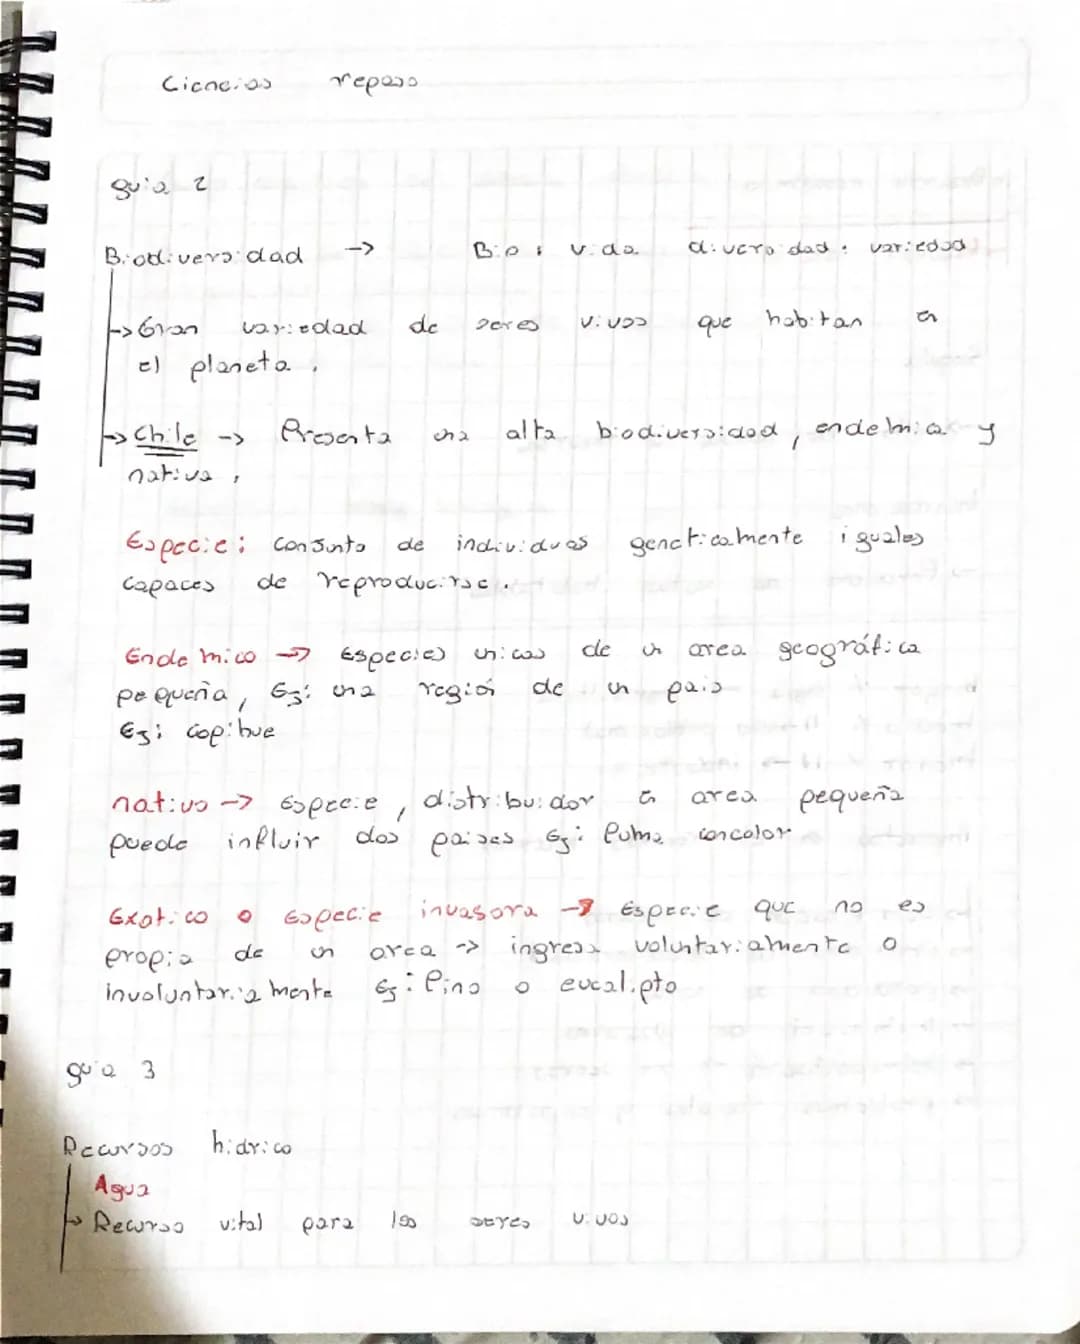 Ciencias repaso
guia 2
Biodiversidad -> Bio: vida diversidad: variedad
-> Gran variedad de seres vivos que habitan en
el planeta.
-> Chile -> Presenta una alta biodiversidad, endemica y
nativa,
Especie: Conjunto de individuos geneticamente iguales
capaces de reproducirse.
Endemico -> Especies unicas de un area geográfica
pequeña, Ej: una región de un pais
Ej: copihue
nativo -> Especie, distribuidor en area pequeña
puede influir dos paises Ej: Puma concolor
Exotico o Especie invasora -> Especie que no es
propia de un area -> ingresa voluntariamente o
involuntariamente Ej: Pino o eucalipto
guia 3
Recursos hidrico
Agua
-> Recurso vital para los seres vivos